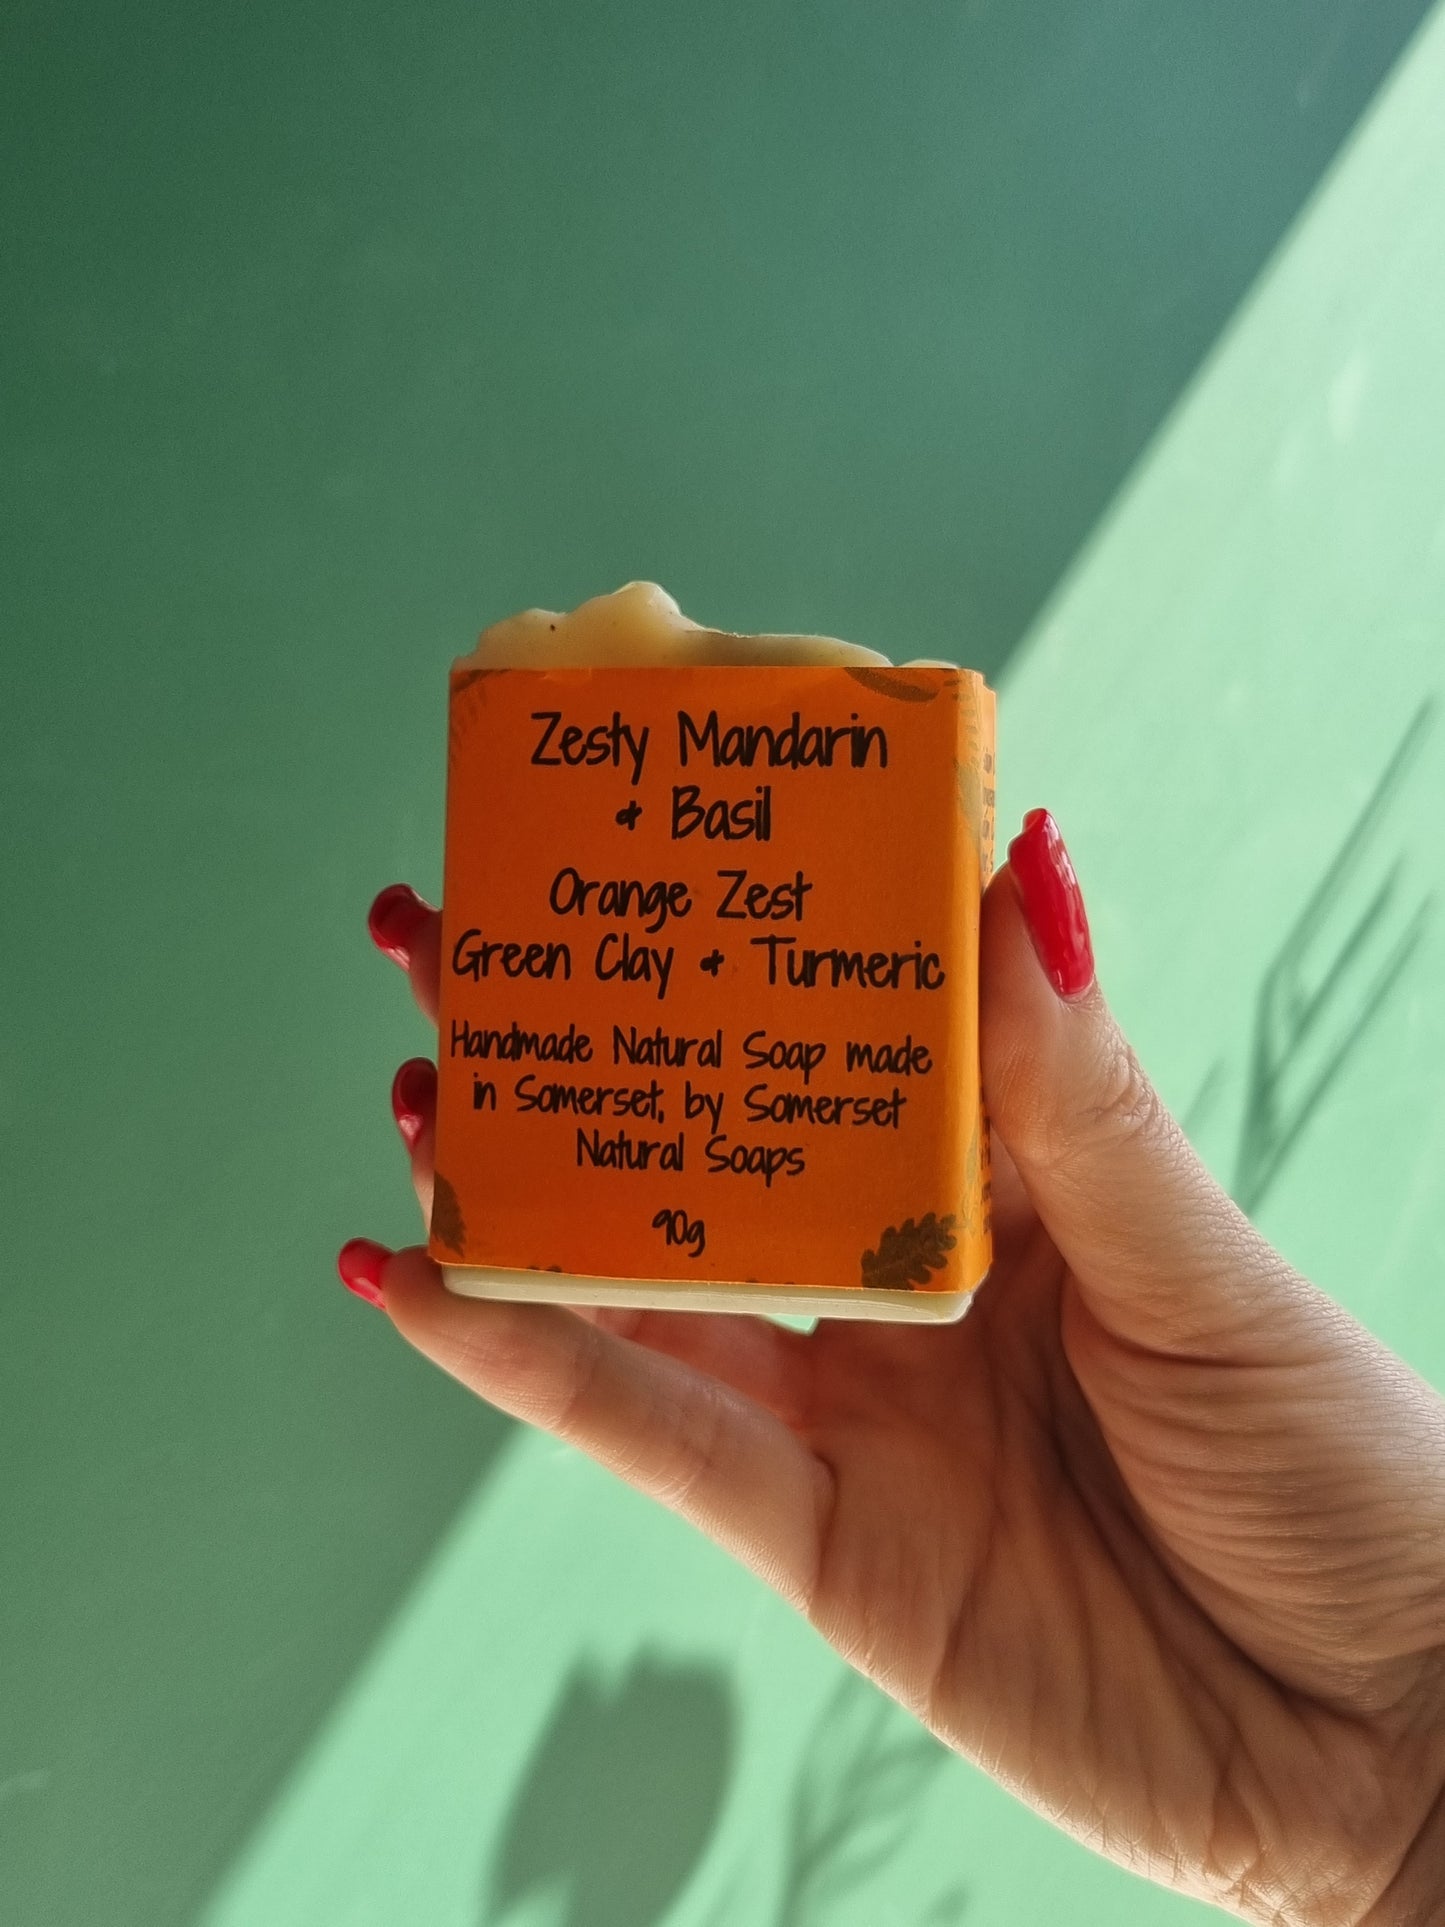 Zesty Mandarin
& Basil
Orange Zest
Green Clay & Turmeric
Handmade Natural Soap made
in Somerset, by Somerset
Natural Soaps
90g